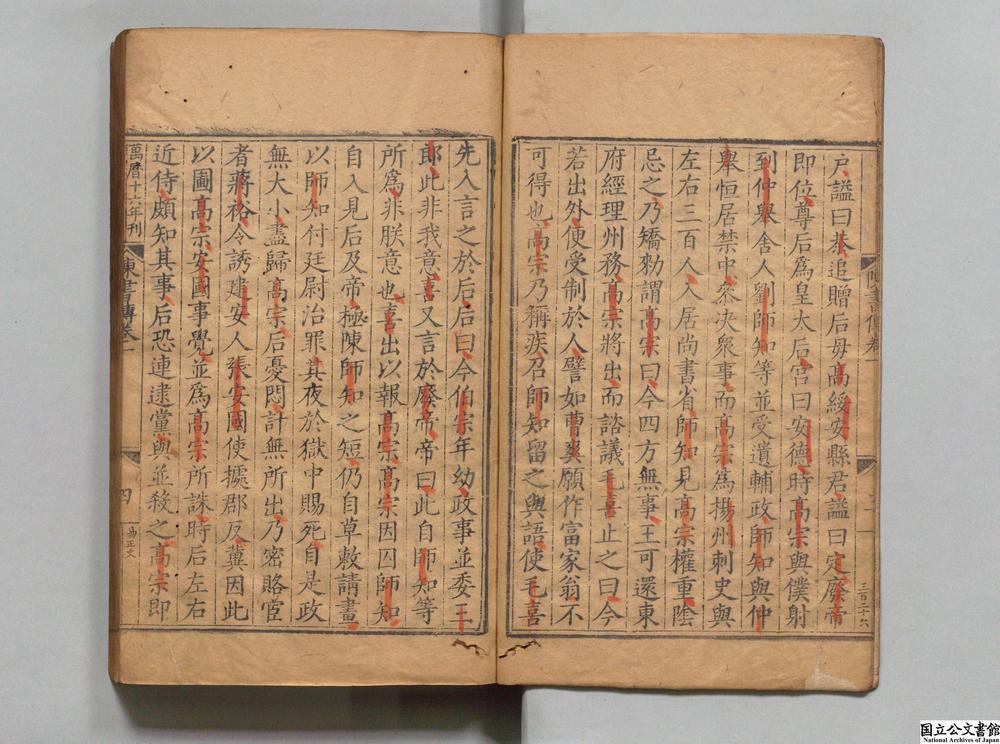 陳書傳卷一
三百二十六
戶謚曰恭追贈后母高綏安縣君謚曰定廢帝
即位尊后爲皇太后宮曰安德時高宗與僕射
到仲舉舍人劉師知等並受遺輔政師知與仲
舉恒居禁中參決衆事而高宗爲揚州刺史與
左右三百人入居尚書省師知見高宗權重陰
忌之乃矯勑謂高宗曰今四方無事王可還東
府經理州務高宗將出而諮議毛喜止之曰今
若出外便受制於人譬如曹爽願作富家翁不
可得也高宗乃稱疾召師知留之與語使毛喜
先入言之於后后曰今伯宗年幼政事並委二
郎此非我意喜又言於廢帝帝曰此自師知等
所爲非朕意也喜出以報高宗高宗因囚師知
自入見后及帝極陳師知之短仍自草敕請畫
以師知付廷尉治罪其夜於獄中賜死自是政
無大小盡歸高宗后憂悶計無所出乃密賂宦
者蔣裕令誘建安人張安國使據郡反冀因此
以圖高宗安國事覺並爲高宗所誅時后左右
近侍頗知其事后恐連逮黨與並殺之高宗即
萬曆十六年刊
陳書傳卷一
四
国立公文書館
National Archives of Japan